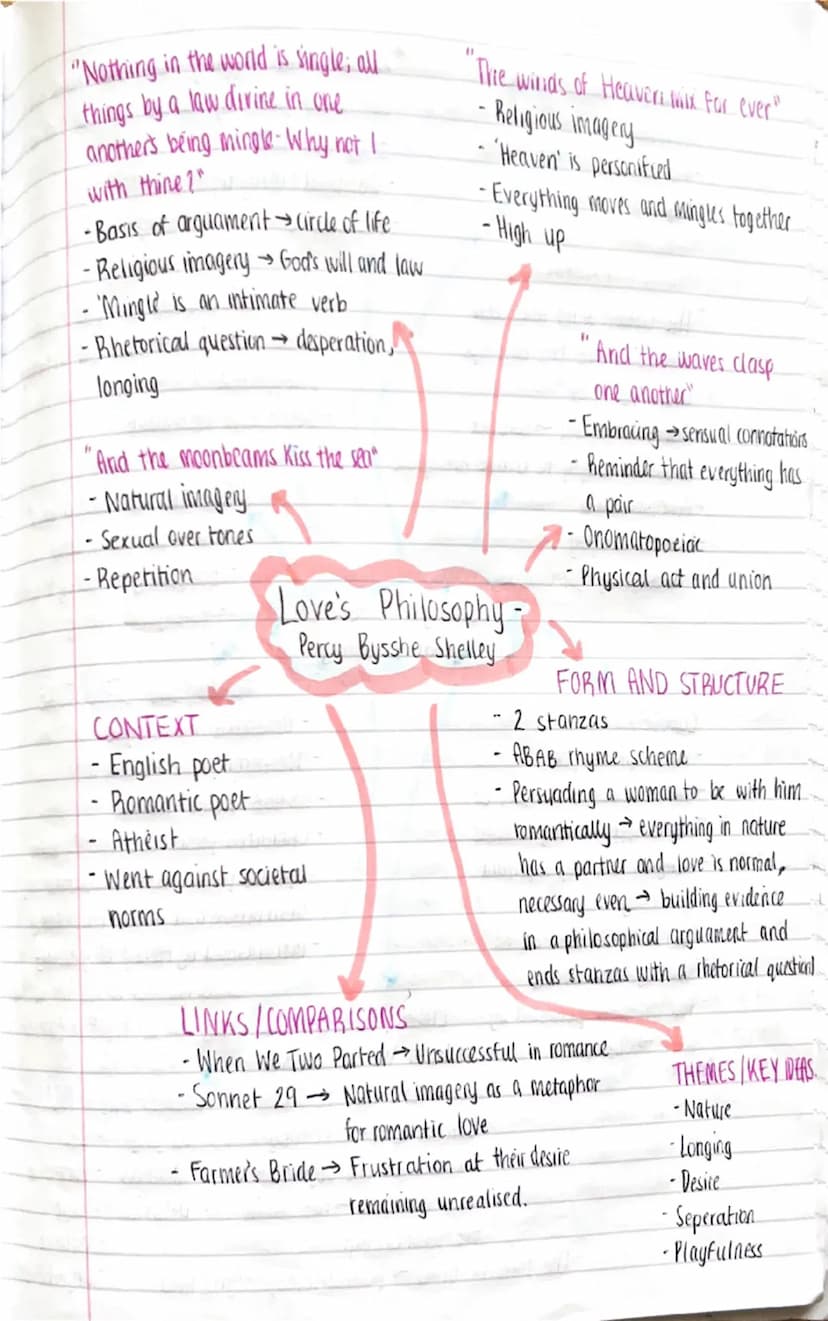 "Nothing in the world is single; all
things by a law divine in one
another's being mingle - Why not I
with thine?"
- Basis of arguament → circle of life
- Religious imagery → God's will and law
- 'Mingle' is an intimate verb
- Rhetorical question → desperation,
longing
"The winds of Heaven mix for ever"
- Religious imagery
- 'Heaven' is personified
- Everything moves and mingles together
- High up
"And the waves clasp
one another"
- Embracing → sensual connotations
- Reminder that everything has
a pair
- Onomatopoeiac
- Physical act and union
"And the moonbeams kiss the sea"
- Natural imagery
- Sexual over tones
- Repetition
Love's Philosophy -
Percy Bysshe Shelley
FORM AND STRUCTURE
- 2 stanzas
- ABAB rhyme scheme
- Persuading a woman to be with him
romantically → everything in nature
has a partner and love is normal,
necessary even → building evidence
in a philosophical arguament and
ends stanzas with a rhetorical question
CONTEXT
- English poet
- Romantic poet
- Atheist
- Went against societal
norms
LINKS/COMPARISONS
- When We Two Parted → Unsuccessful in romance
- Sonnet 29 → Natural imagery as a metaphor
for romantic love
- Farmer's Bride → Frustration at their desire
remaining unrealised.
THEMES/KEY IDEAS
- Nature
- Longing
- Desire
- Seperation
- Playfulness